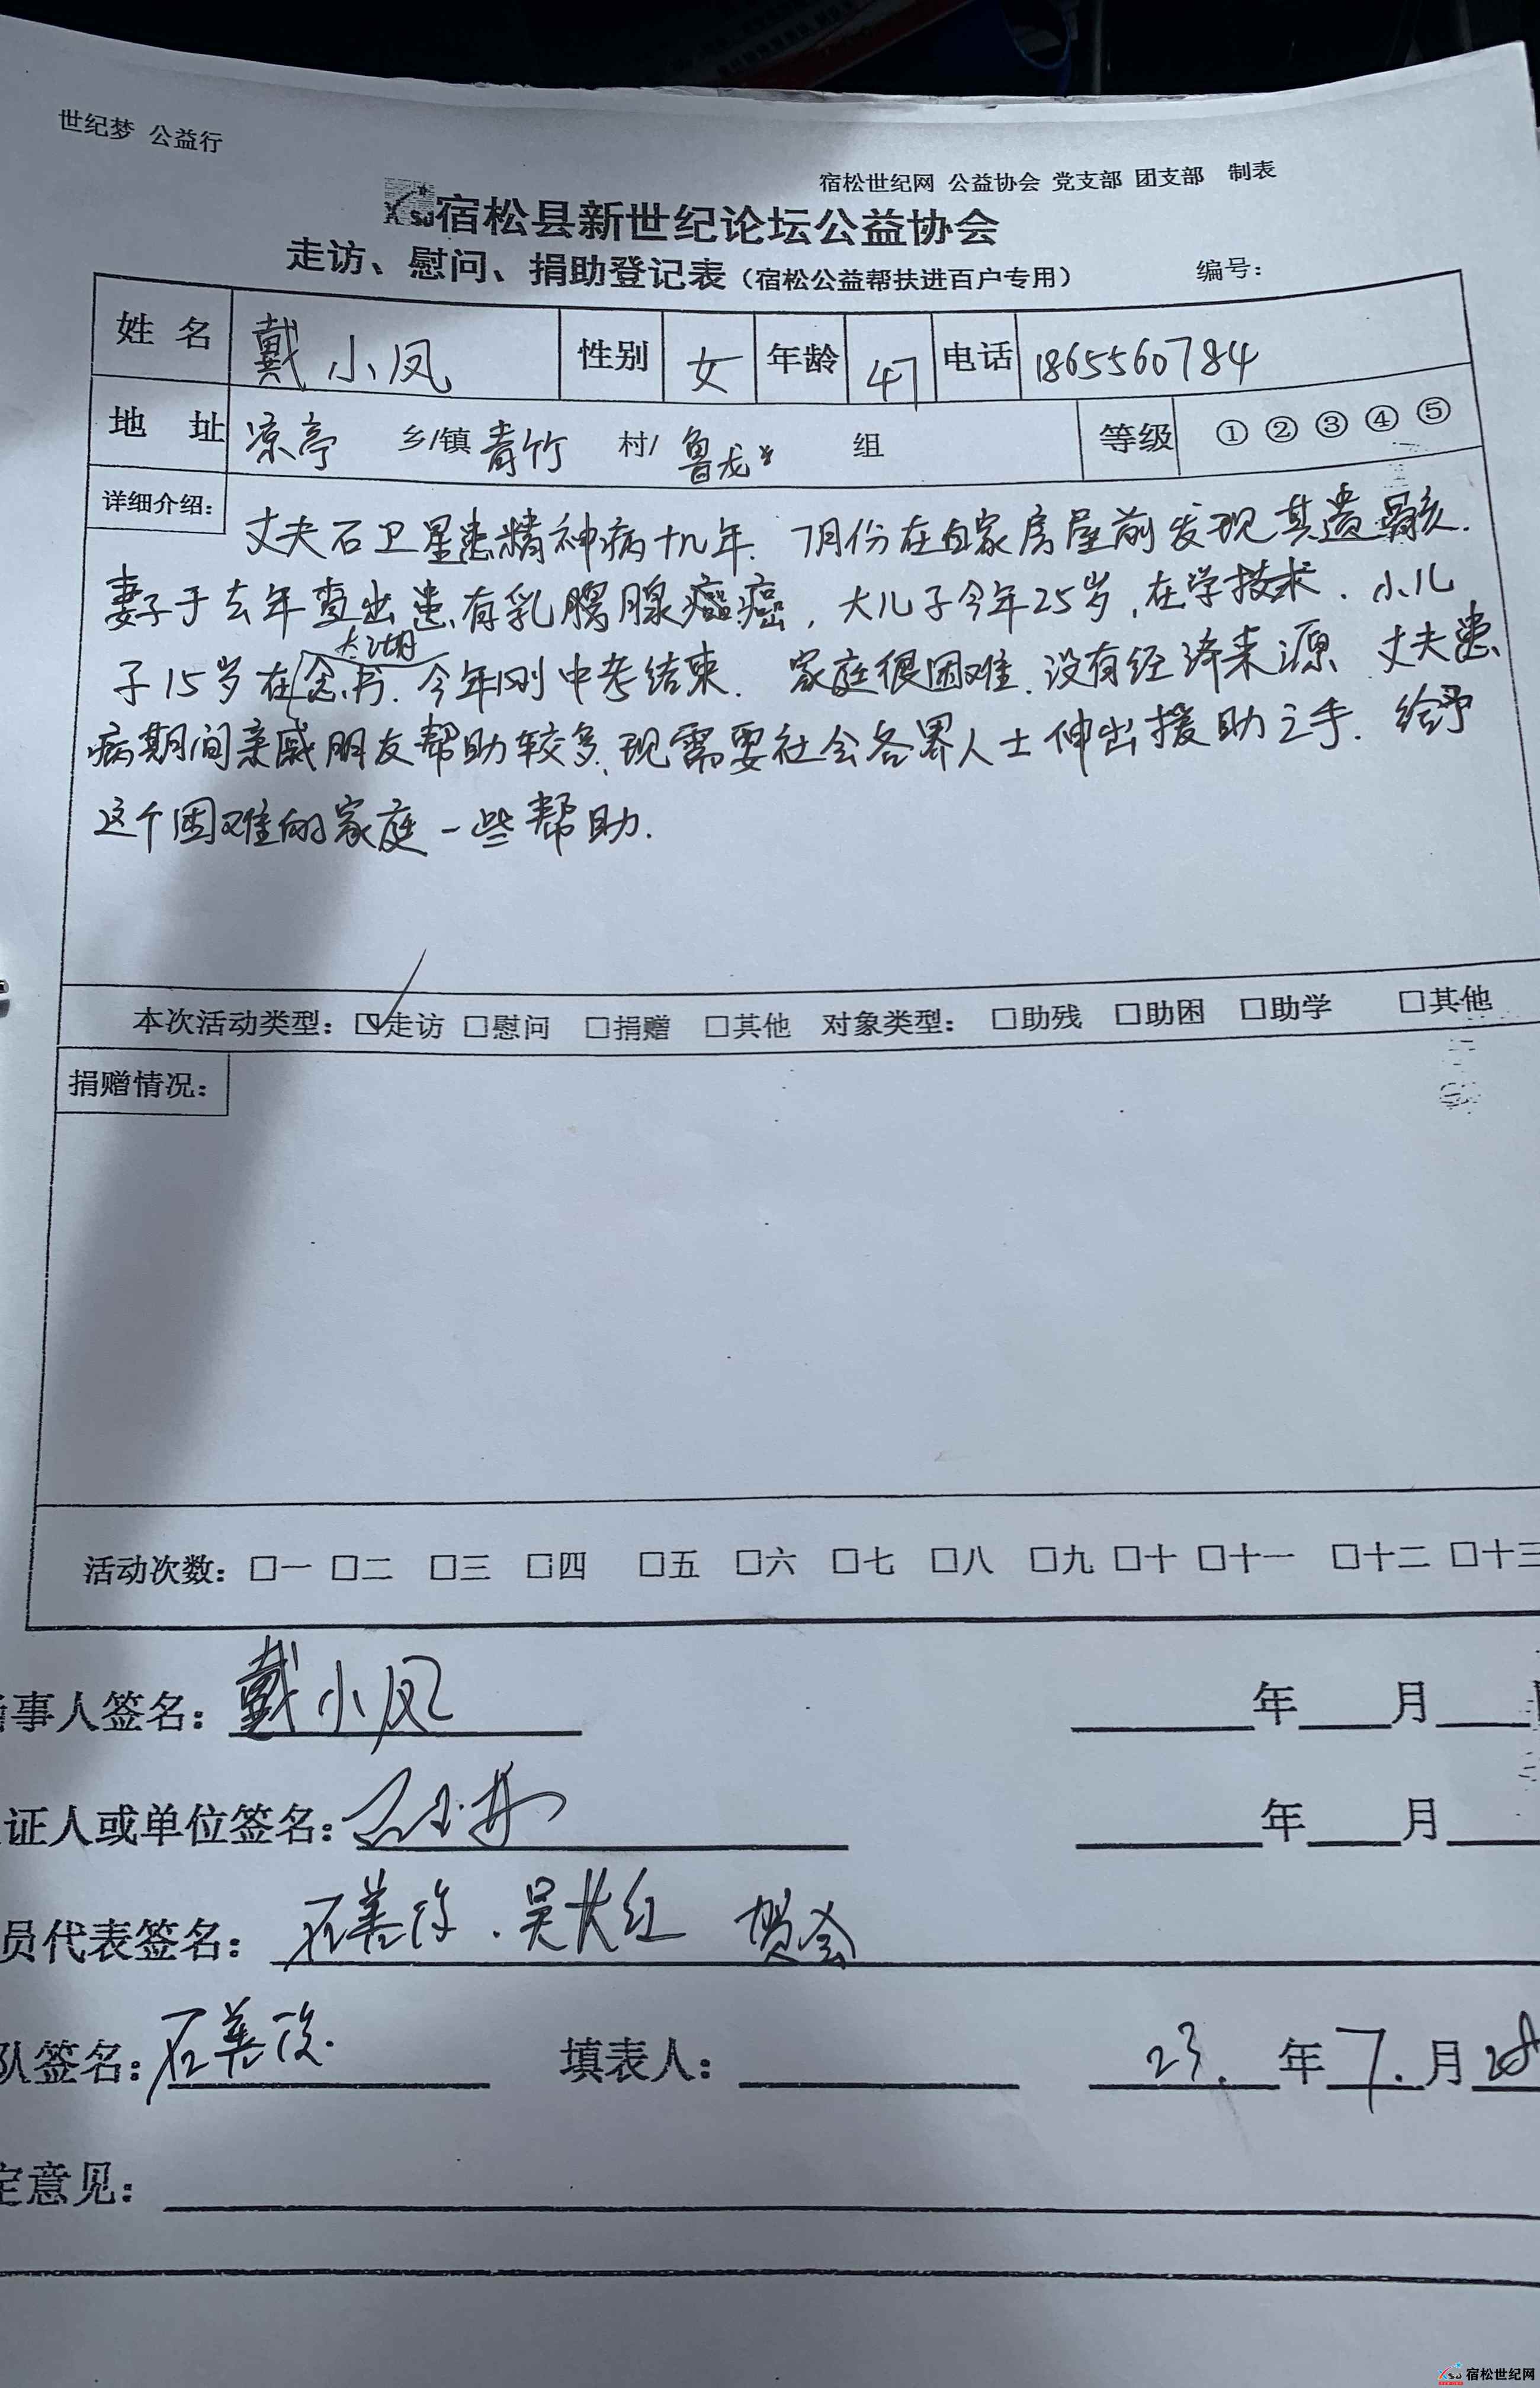 世纪梦 公益行
宿松世纪网 公益协会 党支部 团支部 制表
宿松县新世纪论坛公益协会
走访、慰问、捐助登记表（宿松公益帮扶进百户专用） 编号：
姓名 戴小凤 性别 女 年龄 47 电话 1865560784
地址 凉亭 乡/镇 青竹 村/ 鲁龙 组 等级 ① ② ③ ④ ⑤
详细介绍：
丈夫石卫星患精神病十九年. 7月份在自家房屋前发现其遗骸.
妻子于去年查出患有乳腺癌, 大儿子今年25岁, 在学技术. 小儿
太湖
子15岁在念书. 今年刚中考结束. 家庭很困难. 没有经济来源 丈夫患
病期间亲戚朋友帮助较多, 现需要社会各界人士伸出援助之手. 给予
这个困难的家庭一些帮助.
本次活动类型：☑走访 □慰问 □捐赠 □其他 对象类型： □助残 □助困 □助学 □其他
捐赠情况：
活动次数：□一 □二 □三 □四 □五 □六 □七 □八 □九 □十 □十一 □十二 □十三
事人签名：戴小凤 年 月
证人或单位签名： 年 月
员代表签名： 吴大红 贺会
队签名： 填表人： 23. 年 7. 月 28
定意见：
宿松世纪网